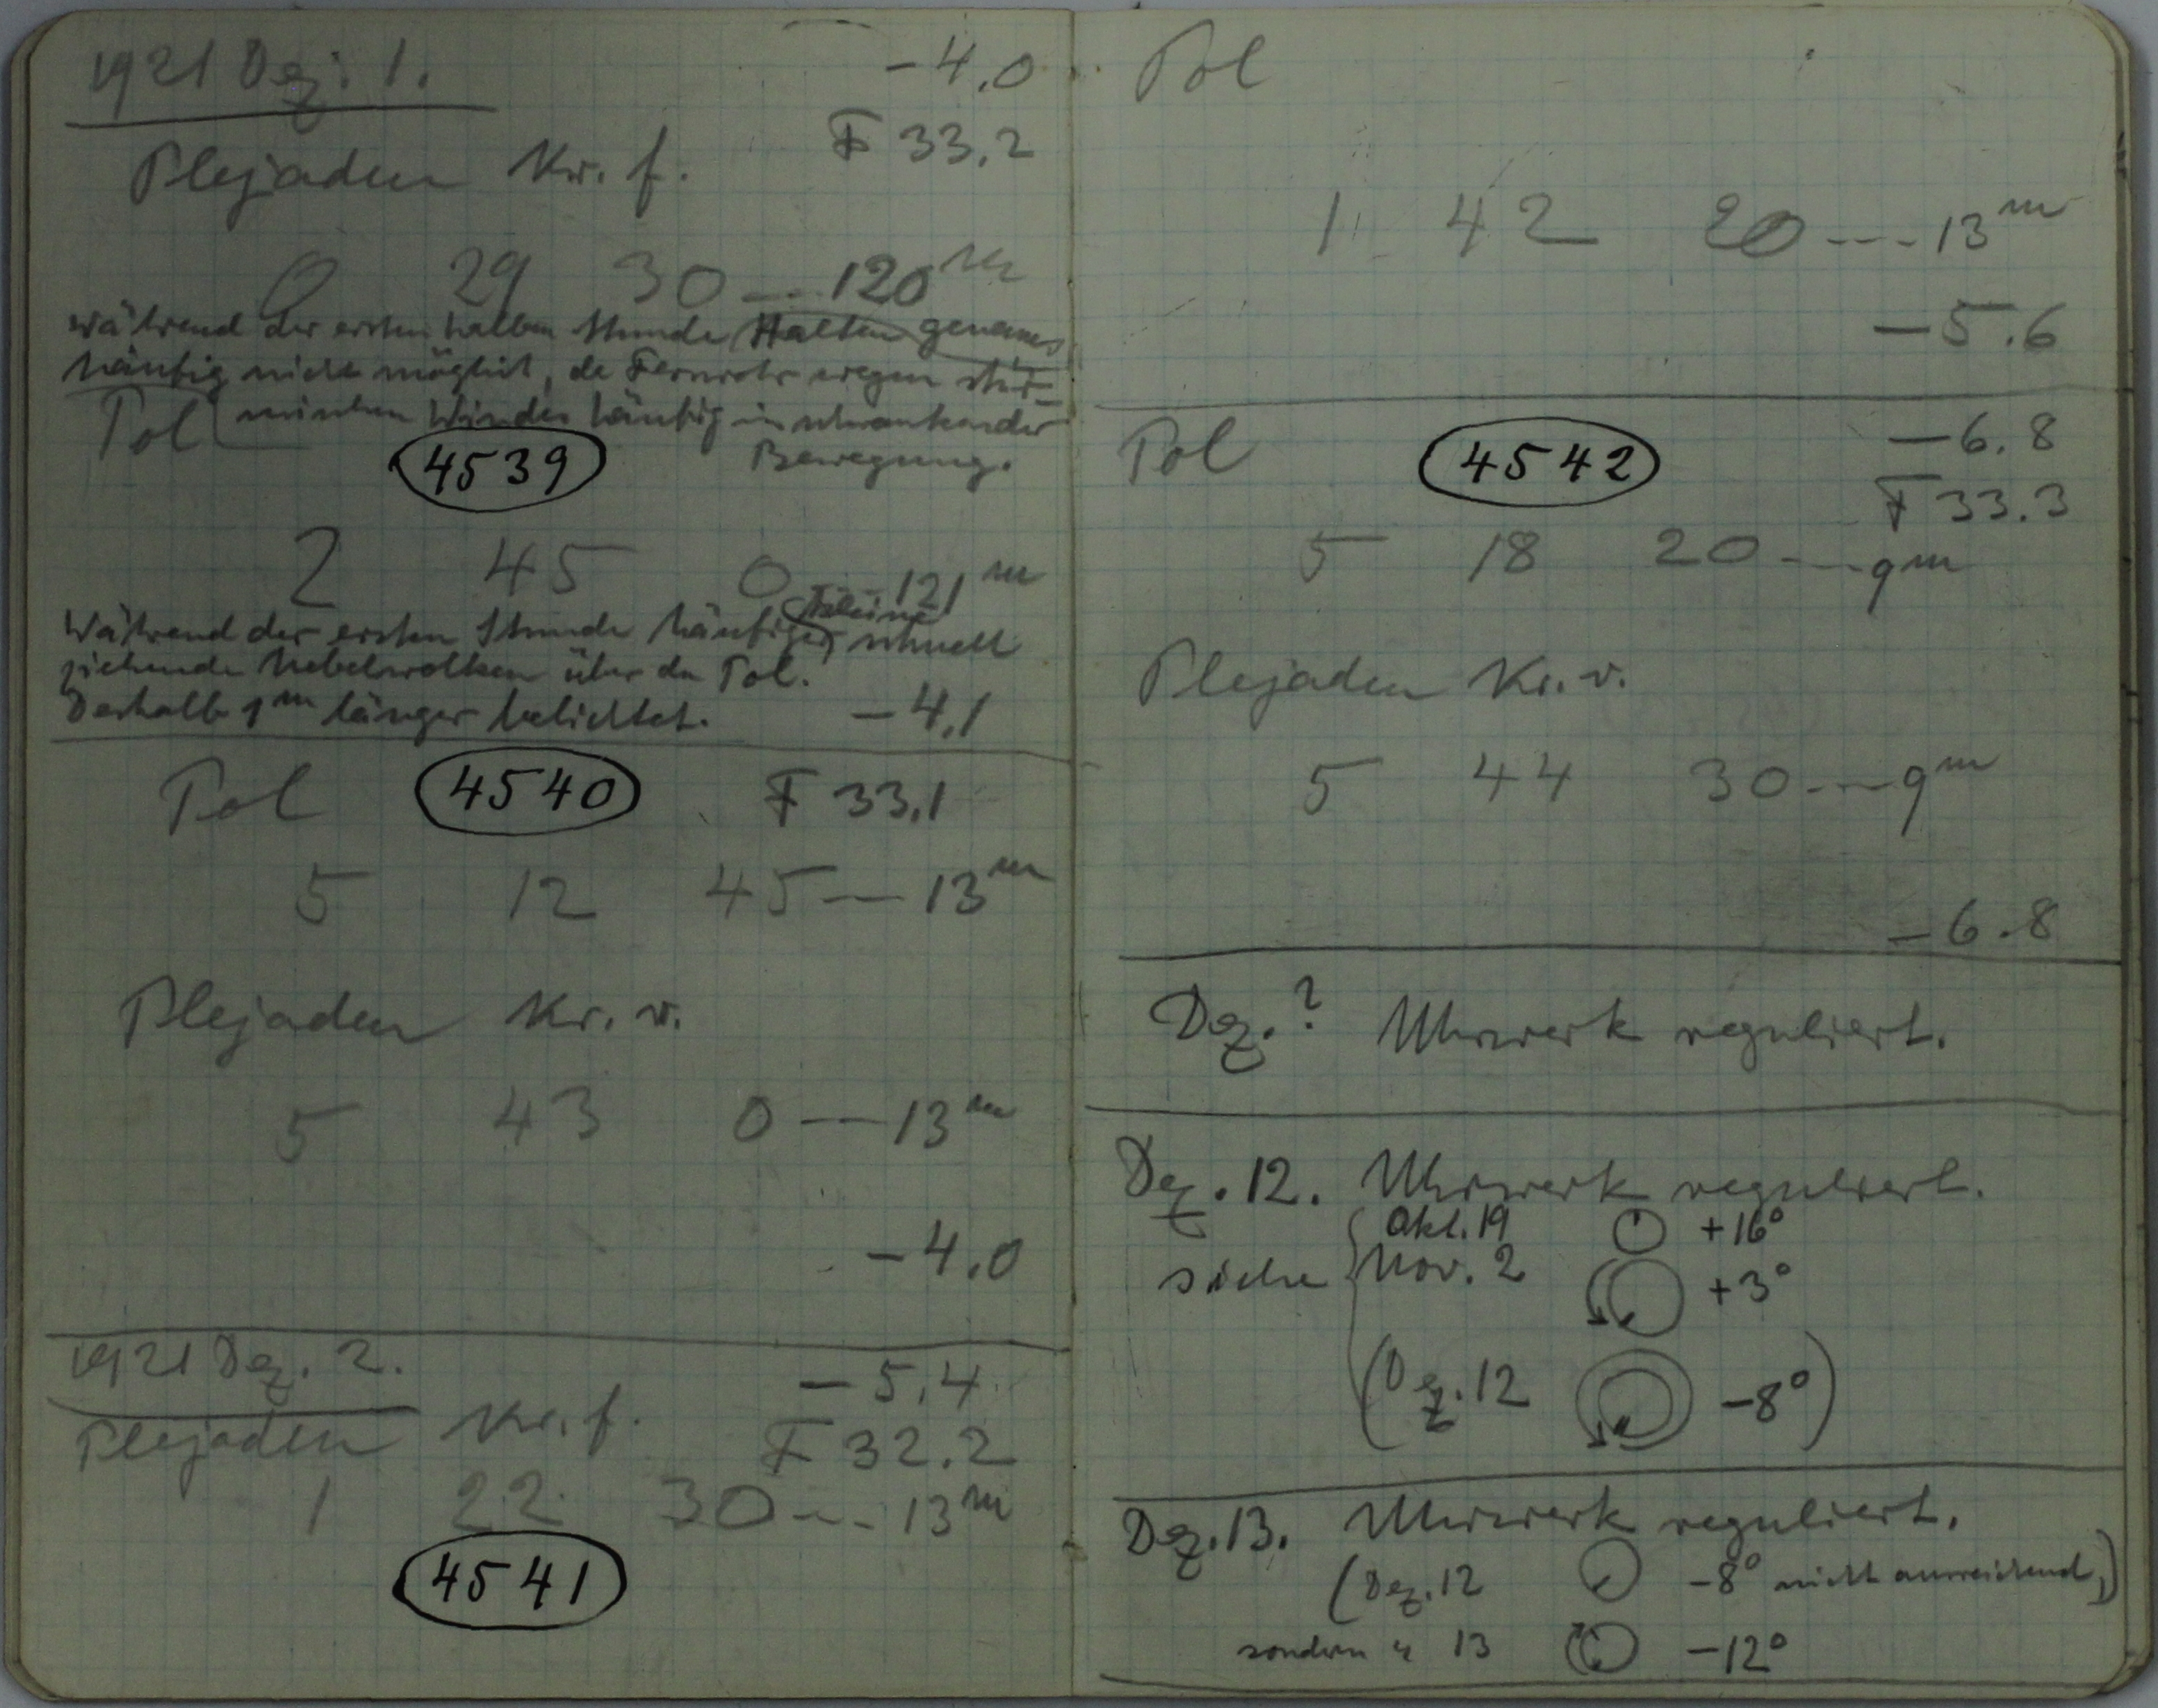 1921 Dez. 1.
-4.0
Plejaden Kr. f.
F 33.2
0 29 30 --- 120 m
Während der ersten halben Stunde Halten genaues
häufig nicht möglich, da Fernrohr wegen stür-
mischen Windes häufig in schwankender
Bewegung.
Pol
4539
2 45 0 --- 121 m
Während der ersten Stunde häufiger kleine schnell
ziehende Nebelwolken über den Pol.
Deshalb 1 m länger belichtet.
-4.1
Pol 4540 F 33.1
5 12 45 --- 13 m
Plejaden Kr. v.
5 43 0 --- 13 m
-4.0
1921 Dez. 2.
-5.4
Plejaden Kr. f.
F 32.2
1 22 30 --- 13 m
4541
Pol
1 42 20 --- 13 m
-5.6
Pol 4542 -6.8
F 33.3
5 18 20 --- 9 m
Plejaden Kr. v.
5 44 30 --- 9 m
-6.8
Dez. ? Uhrwerk reguliert.
Dez. 12. Uhrwerk reguliert.
Okt. 19 +16°
siehe Nov. 2 +3°
(Dez. 12 -8°)
Dez. 13. Uhrwerk reguliert.
(Dez. 12 -8° nicht ausreichend,)
sondern " 13 -12°